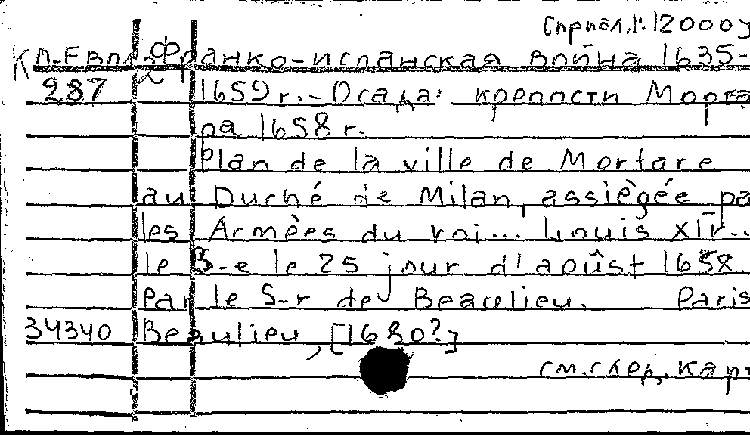 [прибл. 1:12000]
К П-Евп. 2 Франко-испанская война 1635-
287 1659 г. - Осада: крепости Морта
ра 1658 г.
Plan de la ville de Mortare
au Duché de Milan, assiègée pa
les Armèes du roi... Louis XIV..
le 3-e le 25 jour d'aoûst 1658.
Par le S-r de Beaulieu. Paris
34340 Beaulieu, [1680?]
см. след. карт